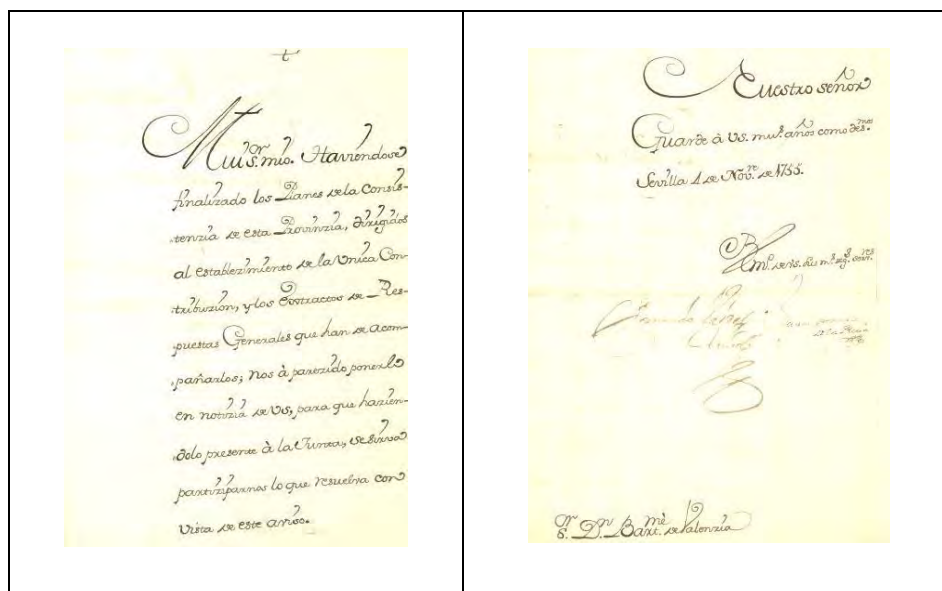 Mui s.r mio. Haviendose
finalizado los Planes de la Consis-
tenzia de esta Provinzia, dirigidos
al establezimiento de la Vnica Con-
tribuzion, y los Extractos de Res-
puestas Generales que han de acom-
pañarlos; nos à parezido ponerlo
en notizia de Vs, para que hazien-
dolo presente à la Junta, se sirva
partiziparnos lo que resuelva con
vista de este aviso.
Nuestro señor
Guarde à Vs. mu.s años como des.mos
Sevilla 4 de Nov.re de 1755.
BLm.o de Vs. sus m.s seg.s serv.res
S.r D.n Bart.mè de Valenzia